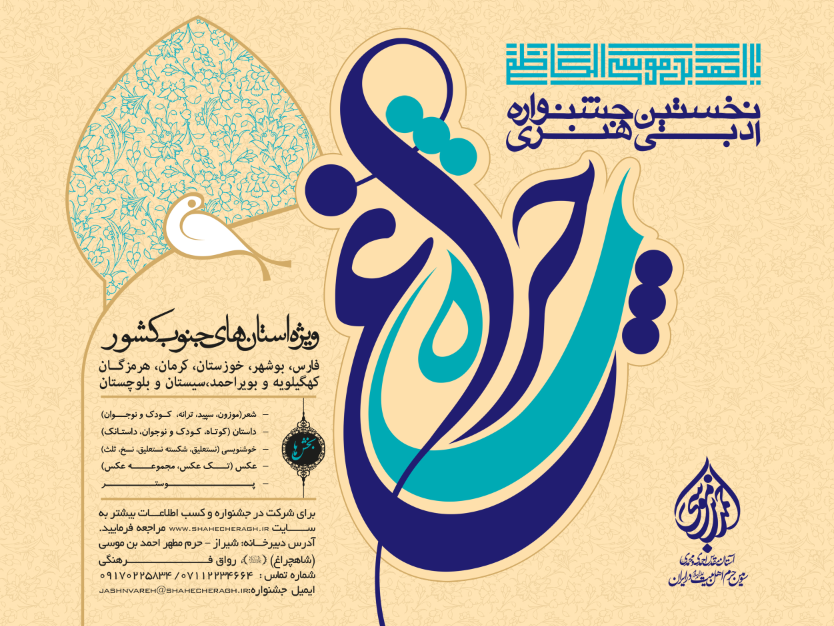 یا احمد بن موسی الکاظم
نخستین جشنواره
ادبی هنری
شاهچراغ
ویژه استان‌های جنوب کشور
فارس، بوشهر، خوزستان، کرمان، هرمزگان
کهگیلویه و بویراحمد،سیستان و بلوچستان
بخش‌ها
– شعر(موزون، سپید، ترانه، کودک و نوجوان)
– داستان (کوتاه، کودک و نوجوان، داستانک)
– خوشنویسی (نستعلیق، شکسته نستعلیق، نسخ، ثلث)
– عکس (تک عکس، مجموعه عکس)
– پوستر
برای شرکت در جشنواره و کسب اطلاعات بیشتر به
سایت WWW.SHAHECHERAGH.IR مراجعه فرمایید.
آدرس دبیرخانه: شیراز – حرم مطهر احمد بن موسی
(شاهچراغ) ، رواق فرهنگی
شماره تماس : ۰۷۱۱۲۲۳۴۶۶۴ / ۰۹۱۷۰۲۲۵۸۳۴
ایمیل جشنواره:JASHNVAREH@SHAHECHERAGH.IR
احمد بن موسی
آستان مقدس احمدی و محمدی
سومین حرم اهل بیت در ایران